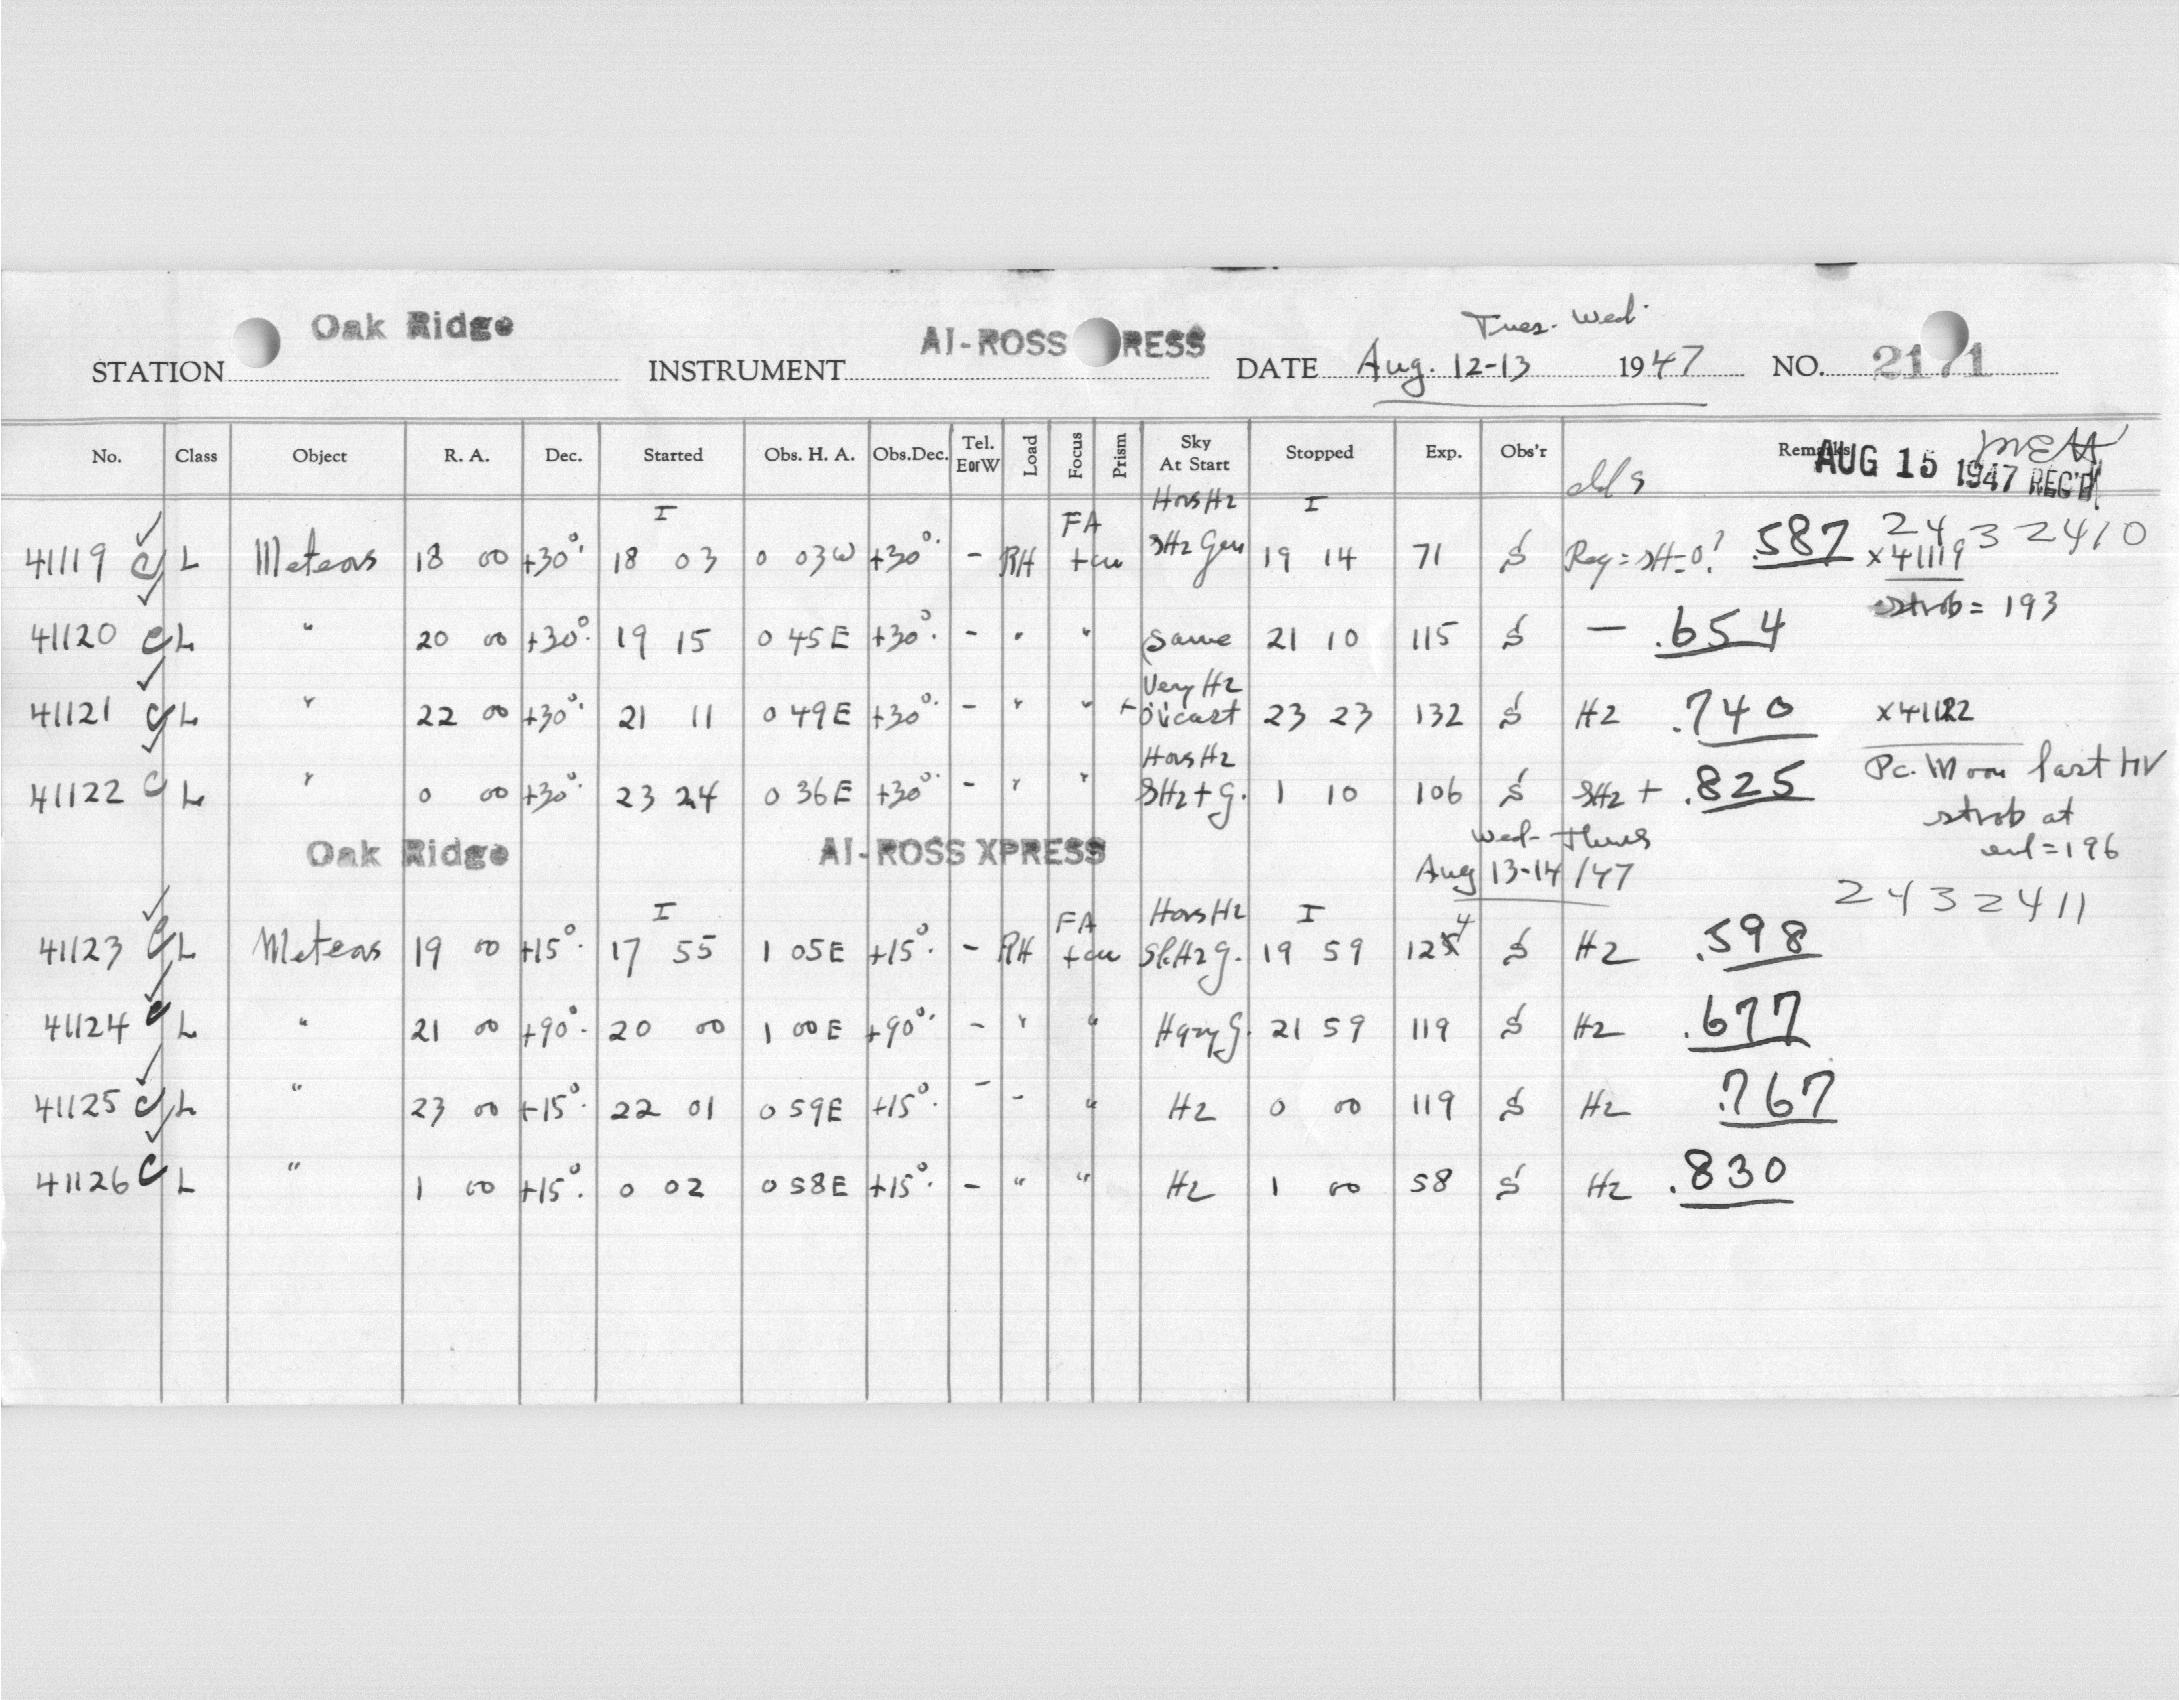 Tues. Wed.
STATION Oak Ridge INSTRUMENT AI-ROSS PRESS DATE Aug. 12-13 1947 NO. 2171
No. Class Object R. A. Dec. Started Obs. H. A. Obs.Dec. Tel. E or W Load Focus Prism Sky At Start Stopped Exp. Obs'r Remarks
AUG 15 1947 REC'D
I FA Hors Hz I
41119 C L Meteors 18 00 +30° 18 03 0 03W +30° - RH +cu SHz Gen 19 14 71 S Reg = SH-0? .587 2432410
x41119
strob = 193
41120 C L " 20 00 +30° 19 15 0 45E +30° - " " Same 21 10 115 S — .654
Very Hz
41121 C L " 22 00 +30° 21 11 0 49E +30° - " " + Ov'cast 23 23 132 S Hz .740 x41122
Hors Hz
41122 C L " 0 00 +30° 23 24 0 36E +30° - " " SHz + G. 1 10 106 S SHz + .825 Pc. Moon last HV
strob at
end = 196
Oak Ridge AI-ROSS XPRESS Wed-Thurs
Aug 13-14/47
2432411
I FA Hors Hz I
41123 C L Meteors 19 00 +15° 17 55 1 05E +15° - RH +cu Sl.Hz G. 19 59 124 S Hz .598
41124 C L " 21 00 +90° 20 00 1 00E +90° - " " Hazy G. 21 59 119 S Hz .677
41125 C L " 23 00 +15° 22 01 0 59E +15° - " " Hz 0 00 119 S Hz .767
41126 C L " 1 00 +15° 0 02 0 58E +15° - " " Hz 1 00 58 S Hz .830